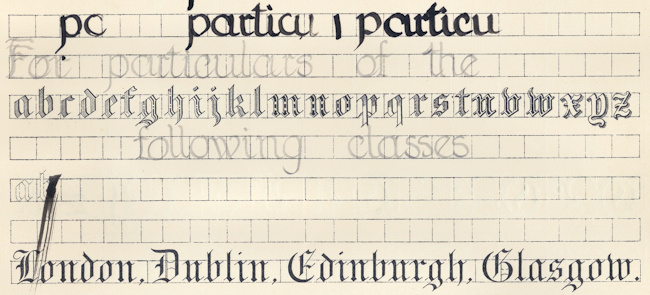 pa particu particu
For particulars of the
abcdefghijklmnopqrstuvwxyz
following classes
London, Dublin, Edinburgh, Glasgow.